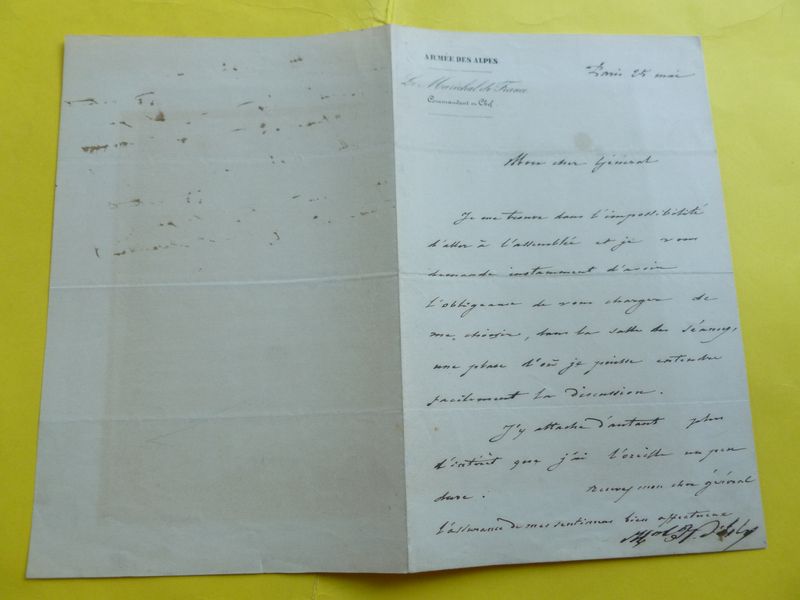 ARMÉE DES ALPES
Le Maréchal de France
Commandant en Chef
Paris 25 mai
Mon cher Général
Je me trouve dans l'impossibilité
d'aller à l'assemblée et je vous
demande instamment d'avoir
l'obligeance de vous charger de
me choisir, dans la salle des séances,
une place d'où je puisse entendre
facilement la discussion.
J'y attache d'autant plus
d'intérêt que j'ai l'oreille un peu
dure. Recevez mon cher général
l'assurance de mes sentiments bien affectueux